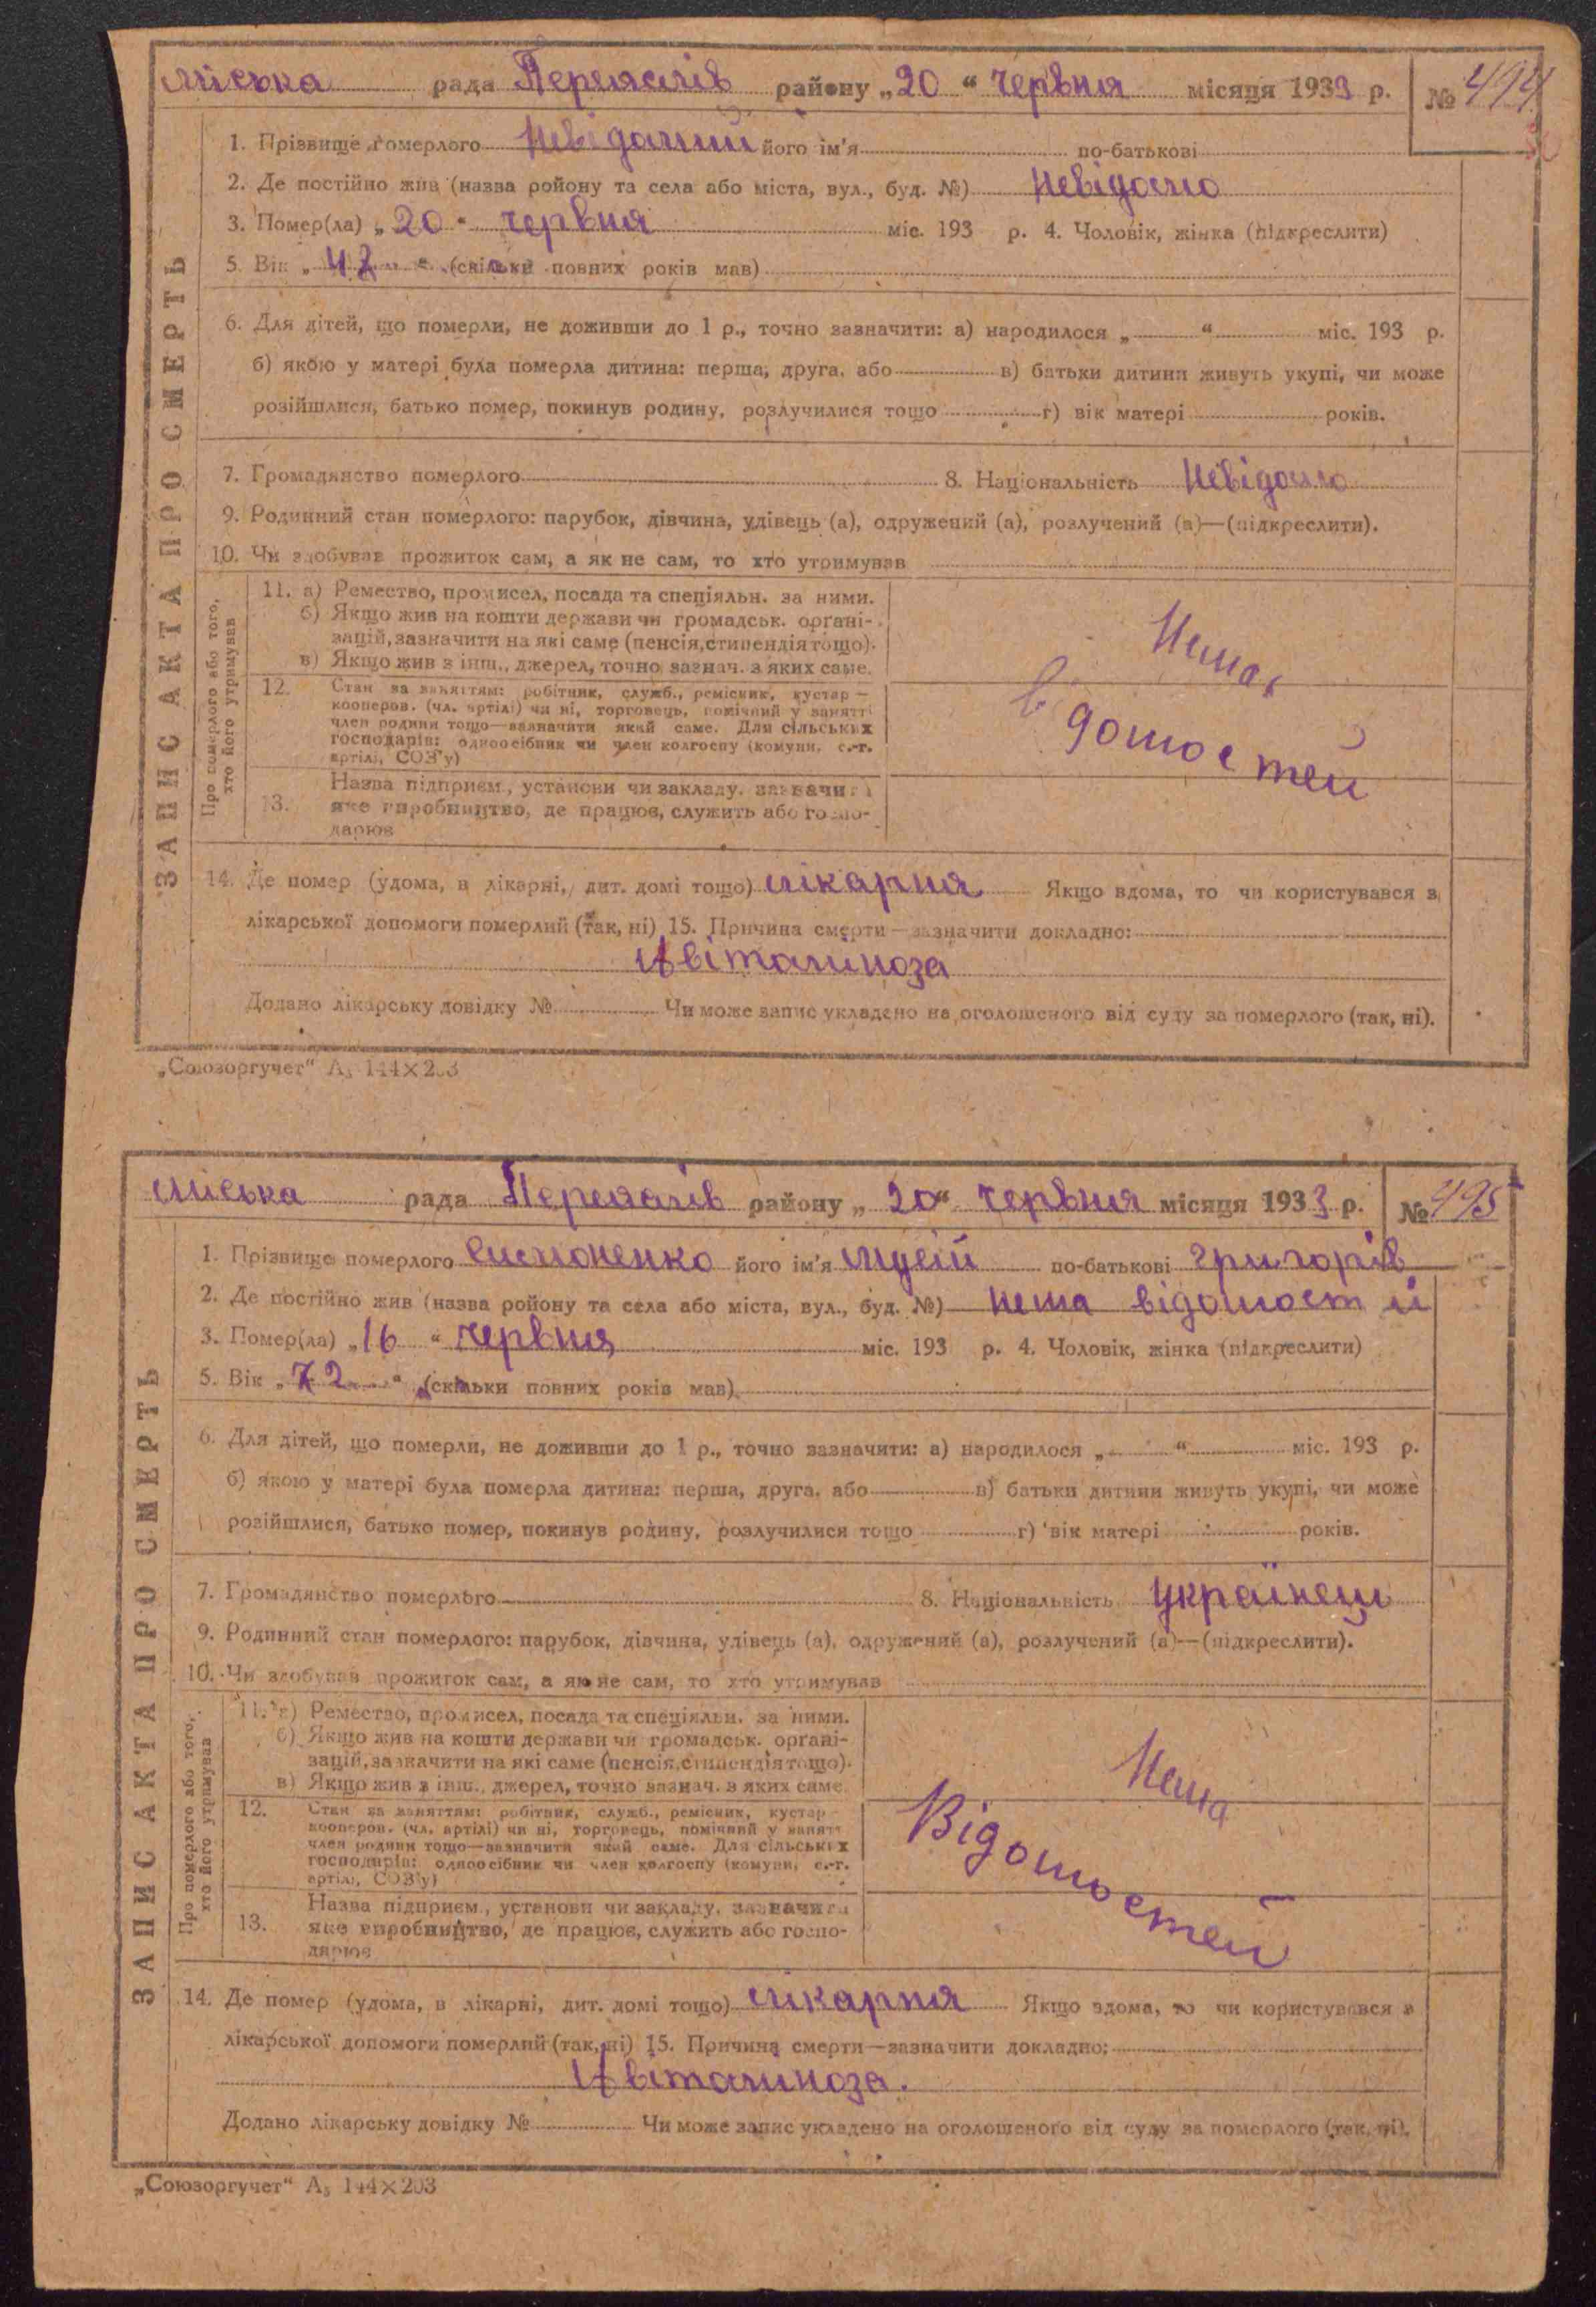 міська рада Переяслів району „20“ червня місяця 1933 р. № 494
1. Прізвище померлого Невідомий його ім'я по-батькові
2. Де постійно жив (назва ройону та села або міста, вул., буд. №) Невідомо
3. Помер(ла) „20“ червня міс. 193 р. 4. Чоловік, жінка (підкреслити)
5. Вік „42“ (скільки повних років мав)
6. Для дітей, що померли, не доживши до 1 р., точно зазначити: а) народилося „ “ міс. 193 р.
б) якою у матері була померла дитина: перша, друга, або в) батьки дитини живуть укупі, чи може
розійшлися, батько помер, покинув родину, розлучилися тощо г) вік матері років.
7. Громадянство померлого 8. Національність Невідомо
9. Родинний стан померлого: парубок, дівчина, удівець (а), одружений (а), розлучений (а)—(підкреслити).
10. Чи здобував прожиток сам, а як не сам, то хто утримував
ЗАПИС АКТА ПРО СМЕРТЬ
Про померлого або того,
хто його утримував
11. а) Ремество, промисел, посада та спеціяльн. за ними.
б) Якщо жив на кошти держави чи громадськ. органі-
зацій, зазначити на які саме (пенсія, стипендія тощо).
в) Якщо жив з інш., джерел, точно зазнач. з яких саме.
12. Стан за заняттям: робітник, служб., ремісник, кустар—
кооперов. (чл. артілі) чи ні, торговець, помічний у занятті
член родини тощо—зазначити який саме. Для сільських
господарів: одноосібник чи член колгоспу (комуни, с.-г.
артілі, СОЗ'у)
13. Назва підприєм., установи чи закладу, зазначити
яке виробництво, де працює, служить або госпо-
дарює
Нема
в домостей
14. Де помер (удома, в лікарні, дит. домі тощо) лікарня Якщо вдома, то чи користувався з
лікарської допомоги померлий (так, ні) 15. Причина смерти—зазначити докладно:
Авітаміноза
Додано лікарську довідку № Чи може запис укладено на оголошеного від суду за померлого (так, ні).
„Союзоргучет“ А₅ 144×203
міська рада Переяслів району „20“ червня місяця 1933 р. № 495
1. Прізвище померлого Симоненко його ім'я Мусій по-батькові Григорів
2. Де постійно жив (назва ройону та села або міста, вул., буд. №) нема відомостій
3. Помер(ла) „16“ червня міс. 193 р. 4. Чоловік, жінка (підкреслити)
5. Вік „72“ (скільки повних років мав)
6. Для дітей, що померли, не доживши до 1 р., точно зазначити: а) народилося „ “ міс. 193 р.
б) якою у матері була померла дитина: перша, друга, або в) батьки дитини живуть укупі, чи може
розійшлися, батько помер, покинув родину, розлучилися тощо г) вік матері років.
7. Громадянство померлого 8. Національність українець
9. Родинний стан померлого: парубок, дівчина, удівець (а), одружений (а), розлучений (а)—(підкреслити).
10. Чи здобував прожиток сам, а як не сам, то хто утримував
ЗАПИС АКТА ПРО СМЕРТЬ
Про померлого або того,
хто його утримував
11. а) Ремество, промисел, посада та спеціяльн. за ними.
б) Якщо жив на кошти держави чи громадськ. органі-
зацій, зазначити на які саме (пенсія, стипендія тощо).
в) Якщо жив з інш., джерел, точно зазнач. з яких саме
12. Стан за заняттям: робітник, служб., ремісник, кустар—
кооперов. (чл. артілі) чи ні, торговець, помічний у занятті
член родини тощо—зазначити який саме. Для сільських
господарів: одноосібник чи член колгоспу (комуни, с.-г.
артілі, СОЗ'у)
13. Назва підприєм., установи чи закладу, зазначити
яке виробництво, де працює, служить або госпо-
дарює
Нема
Відомостей
14. Де помер (удома, в лікарні, дит. домі тощо) лікарня Якщо вдома, то чи користувався з
лікарської допомоги померлий (так, ні) 15. Причина смерти—зазначити докладно:
Авітаміноза.
Додано лікарську довідку № Чи може запис укладено на оголошеного від суду за померлого (так, ні).
„Союзоргучет“ А₅ 144×203